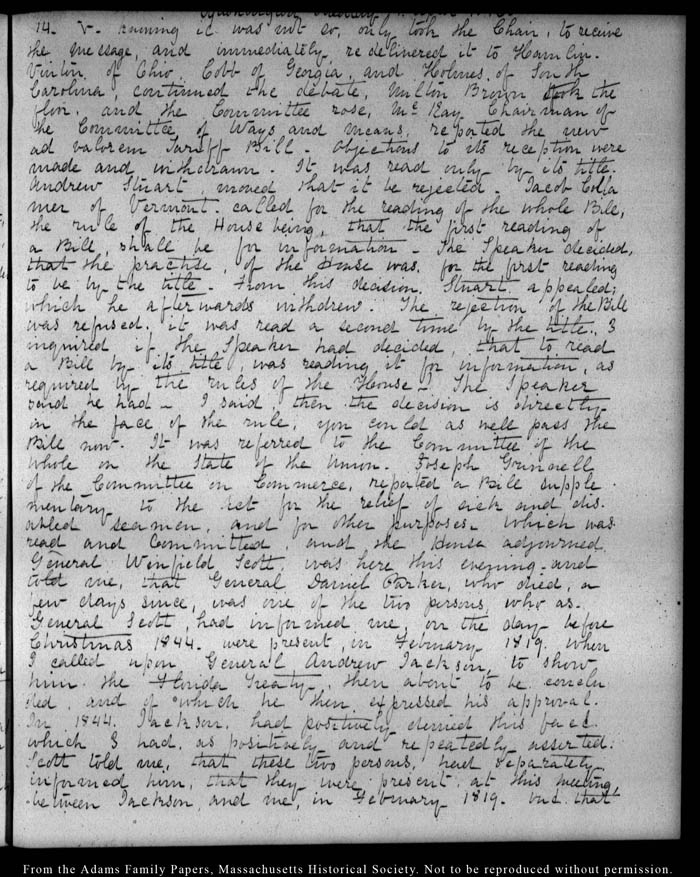 14. V. running it was not so, only took the Chair, to receive
the message, and immediately, redelivered it to Hamlin.
Vinton, of Ohio, Cobb of Georgia, and Holmes, of South
Carolina, continued the debate, Milton Brown took the
floor, and the Committee rose, McKay Chairman of
the Committee of Ways and Means, reported the new
ad valorem Tariff Bill. Objections to its reception were
made and withdrawn. It was read only by its title.
Andrew Stuart, moved that it be rejected. Jacob Colla
mer of Vermont. called for the reading of the whole Bill,
the rule of the House being, that the first reading of
a Bill, shall be for information. The Speaker decided,
that the practise, of the House was, for the first reading
to be by the title. From this decision, Stuart, appealed;
which he afterwards withdrew. The rejection of the Bill
was refused. it was read a second time by the title. I
inquired if the Speaker had decided, that to read
a Bill by its title, was reading it for information, as
required by the rules of the House. The Speaker
said he had. I said, then the decision is directly
in the face of the rule, you could as well pass the
Bill now. It was referred to the Committee of the
whole on the State of the Union. Joseph Grinnell
of the Committee on Commerce, reported a Bill supple
mentary to the Act for the relief of sick and dis.
abled seamen, and for other purposes. which was
read and Committed, and the House adjourned.
General Winfield Scott, was here this evening and
told me, that General Daniel Parker, who died, a
few days since, was one of the two persons, who as.
General Scott, had informed me, on the day before
Christmas 1844. were present, in February 1819. when
I called upon General Andrew Jackson, to show
him the Florida Treaty, then about to be conclu
ded, and of which he then expressed his approval.
In 1844. Jackson, had positively denied this fact
which I had, as positively and repeatedly asserted.
Scott told me, that these two persons, had separately
informed him, that they were present, at this meeting
between Jackson, and me, in February 1819. but that
From the Adams Family Papers, Massachusetts Historical Society. Not to be reproduced without permission.